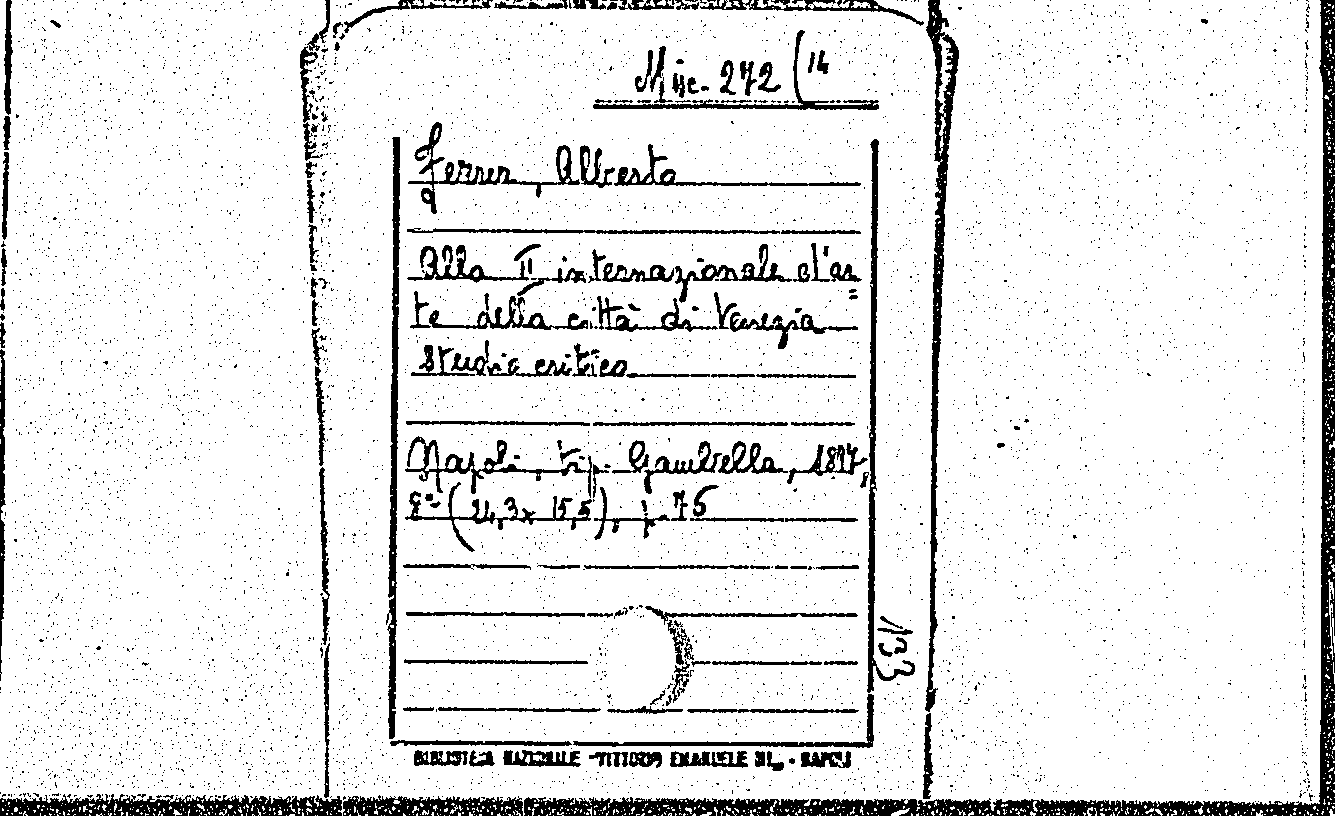 Misc. 272 (14
Ferrer, Alberto
Alla II internazionale d'ar=
te della città di Venezia
Studio critico
Napoli, tip. Gambella, 1897,
8° (24,3x 15,5), p. 75
133
BIBLIOTECA NAZIONALE "VITTORIO EMANUELE III" - NAPOLI